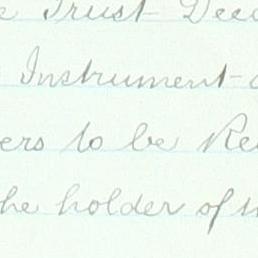 Trust Deed
Instrument
ers to be Re
the holder of